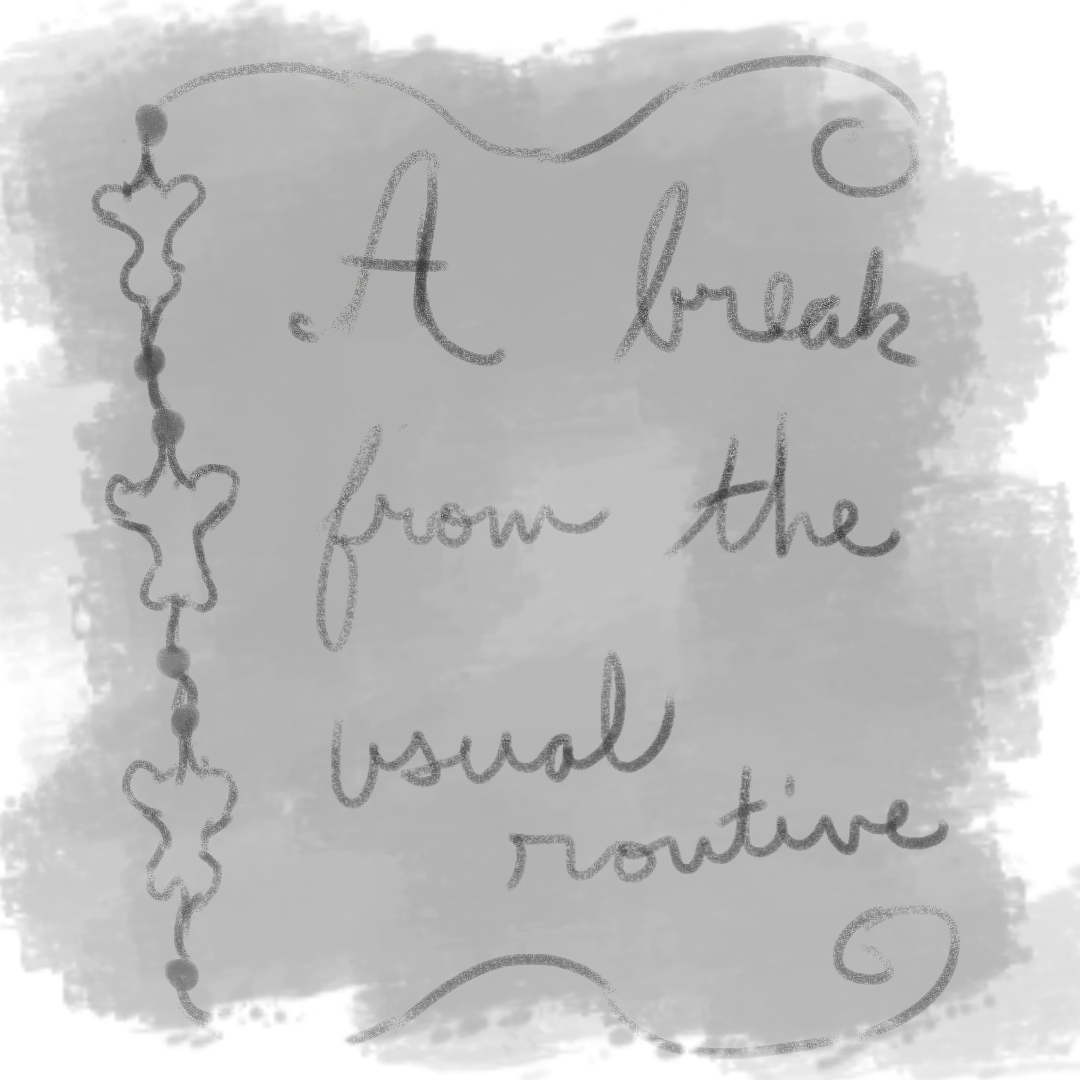 A break
from the
usual
routine